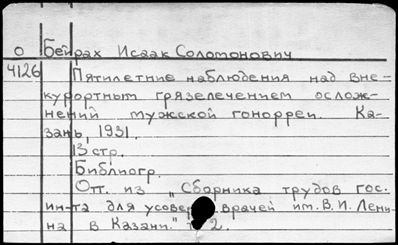 О Бейрах Исаак Соломонович
4126 Пятилетние наблюдения над вне-
курортным грязелечением ослож-
нений мужской гонорреи. Ка-
зань, 1931.
13 стр.
Библиогр.
Отт. из "Сборника трудов гос.
ин-та для усовер врачей им. В. И. Лени-
на в Казани." 2.